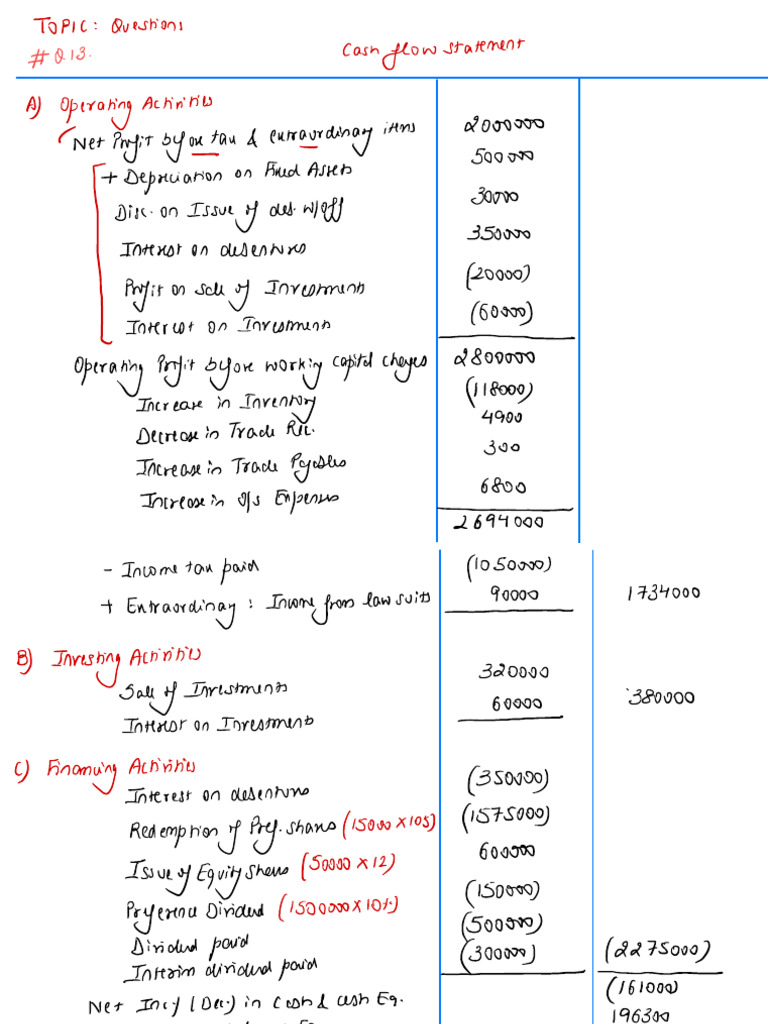 TOPIC: Questions
#Q13.
Cash flow statement
A) Operating Activities
Net Profit before tax & extraordinary items 2000000
+ Depreciation on Fixed Assets 500000
Disc. on Issue of deb. w/off 30000
Interest on debentures 350000
Profit on Sale of Investment (20000)
Interest on Investment (60000)
Operating Profit before working capital changes 2800000
Increase in Inventory (118000)
Decrease in Trade Rec. 4900
Increase in Trade Payables 300
Increase in O/s Expenses 6800
2694000
- Income tax paid (1050000)
+ Extraordinary: Income from law suits 90000 1734000
B) Investing Activities
Sale of Investments 320000
Interest on Investment 60000 380000
C) Financing Activities
Interest on debentures (350000)
Redemption of Pref. shares (15000 x 105) (1575000)
Issue of Equity Shares (50000 x 12) 600000
Preference Dividend (1500000 x 10%) (150000)
Dividend paid (500000)
Interim dividend paid (300000) (2275000)
Net Incr/(Dec.) in Cash & cash Eq. (161000)
196300